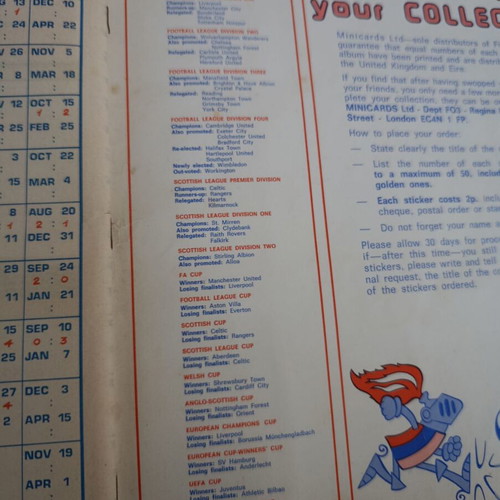 13 DEC 10
1
24 APR 22
26 NOV 5
8 MAR 18
12 OCT 15
1 2
25 FEB 25
3 OCT 22
15 MAR 4
8 AUG 20
1 2 : 1
11 DEC 31
29 SEP 24
2 : 0
11 JAN 21
15 SEP 10
4 0 : 3
25 JAN 7
27 DEC 3
4
2 APR 15
NOV 19
APR 1
Relegated: Sunderland
Stoke City
Tottenham Hotspur
FOOTBALL LEAGUE DIVISION TWO
Champions: Wolverhampton Wanderers
Also promoted: Chelsea
Nottingham Forest
Relegated: Carlisle United
Plymouth Argyle
Hereford United
FOOTBALL LEAGUE DIVISION THREE
Champions: Mansfield Town
Also promoted: Brighton & Hove Albion
Crystal Palace
Relegated: Reading
Northampton Town
Grimsby Town
York City
FOOTBALL LEAGUE DIVISION FOUR
Champions: Cambridge United
Also promoted: Exeter City
Colchester United
Bradford City
Re-elected: Halifax Town
Hartlepool United
Southport
Newly elected: Wimbledon
Out-voted: Workington
SCOTTISH LEAGUE PREMIER DIVISION
Champions: Celtic
Runners-up: Rangers
Relegated: Hearts
Kilmarnock
SCOTTISH LEAGUE DIVISION ONE
Champions: St. Mirren
Also promoted: Clydebank
Relegated: Raith Rovers
Falkirk
SCOTTISH LEAGUE DIVISION TWO
Champions: Stirling Albion
Also promoted: Alloa
FA CUP
Winners: Manchester United
Losing finalists: Liverpool
FOOTBALL LEAGUE CUP
Winners: Aston Villa
Losing finalists: Everton
SCOTTISH CUP
Winners: Celtic
Losing finalists: Rangers
SCOTTISH LEAGUE CUP
Winners: Aberdeen
Losing finalists: Celtic
WELSH CUP
Winners: Shrewsbury Town
Losing finalists: Cardiff City
ANGLO-SCOTTISH CUP
Winners: Nottingham Forest
Losing finalists: Orient
EUROPEAN CHAMPIONS CUP
Winners: Liverpool
Losing finalists: Borussia Münchengladbach
EUROPEAN CUP-WINNERS' CUP
Winners: SV Hamburg
Losing finalists: Anderlecht
UEFA CUP
Winners: Juventus
Losing finalists: Athletic Bilbao
your COLLEC
Minicards Ltd—sole distributors of
guarantee that equal numbers of each
album have been printed and are distri
the United Kingdom and Eire.
If you find that after having swapped
your friends, you only need a few mo
plete your collection, they can be
MINICARDS Ltd - Dept FOS - Regina
Street - London EC4N 1 FP.
How to place your order:
— State clearly the title of the
— List the number of each
to a maximum of 50, includ
golden ones.
— Each sticker costs 2p. inclu
cheque, postal order or sta
— Do not forget your name
Please allow 30 days for proc
if—after this time—you still
stickers, please write and tell
nal request, the title of the
of the stickers ordered.